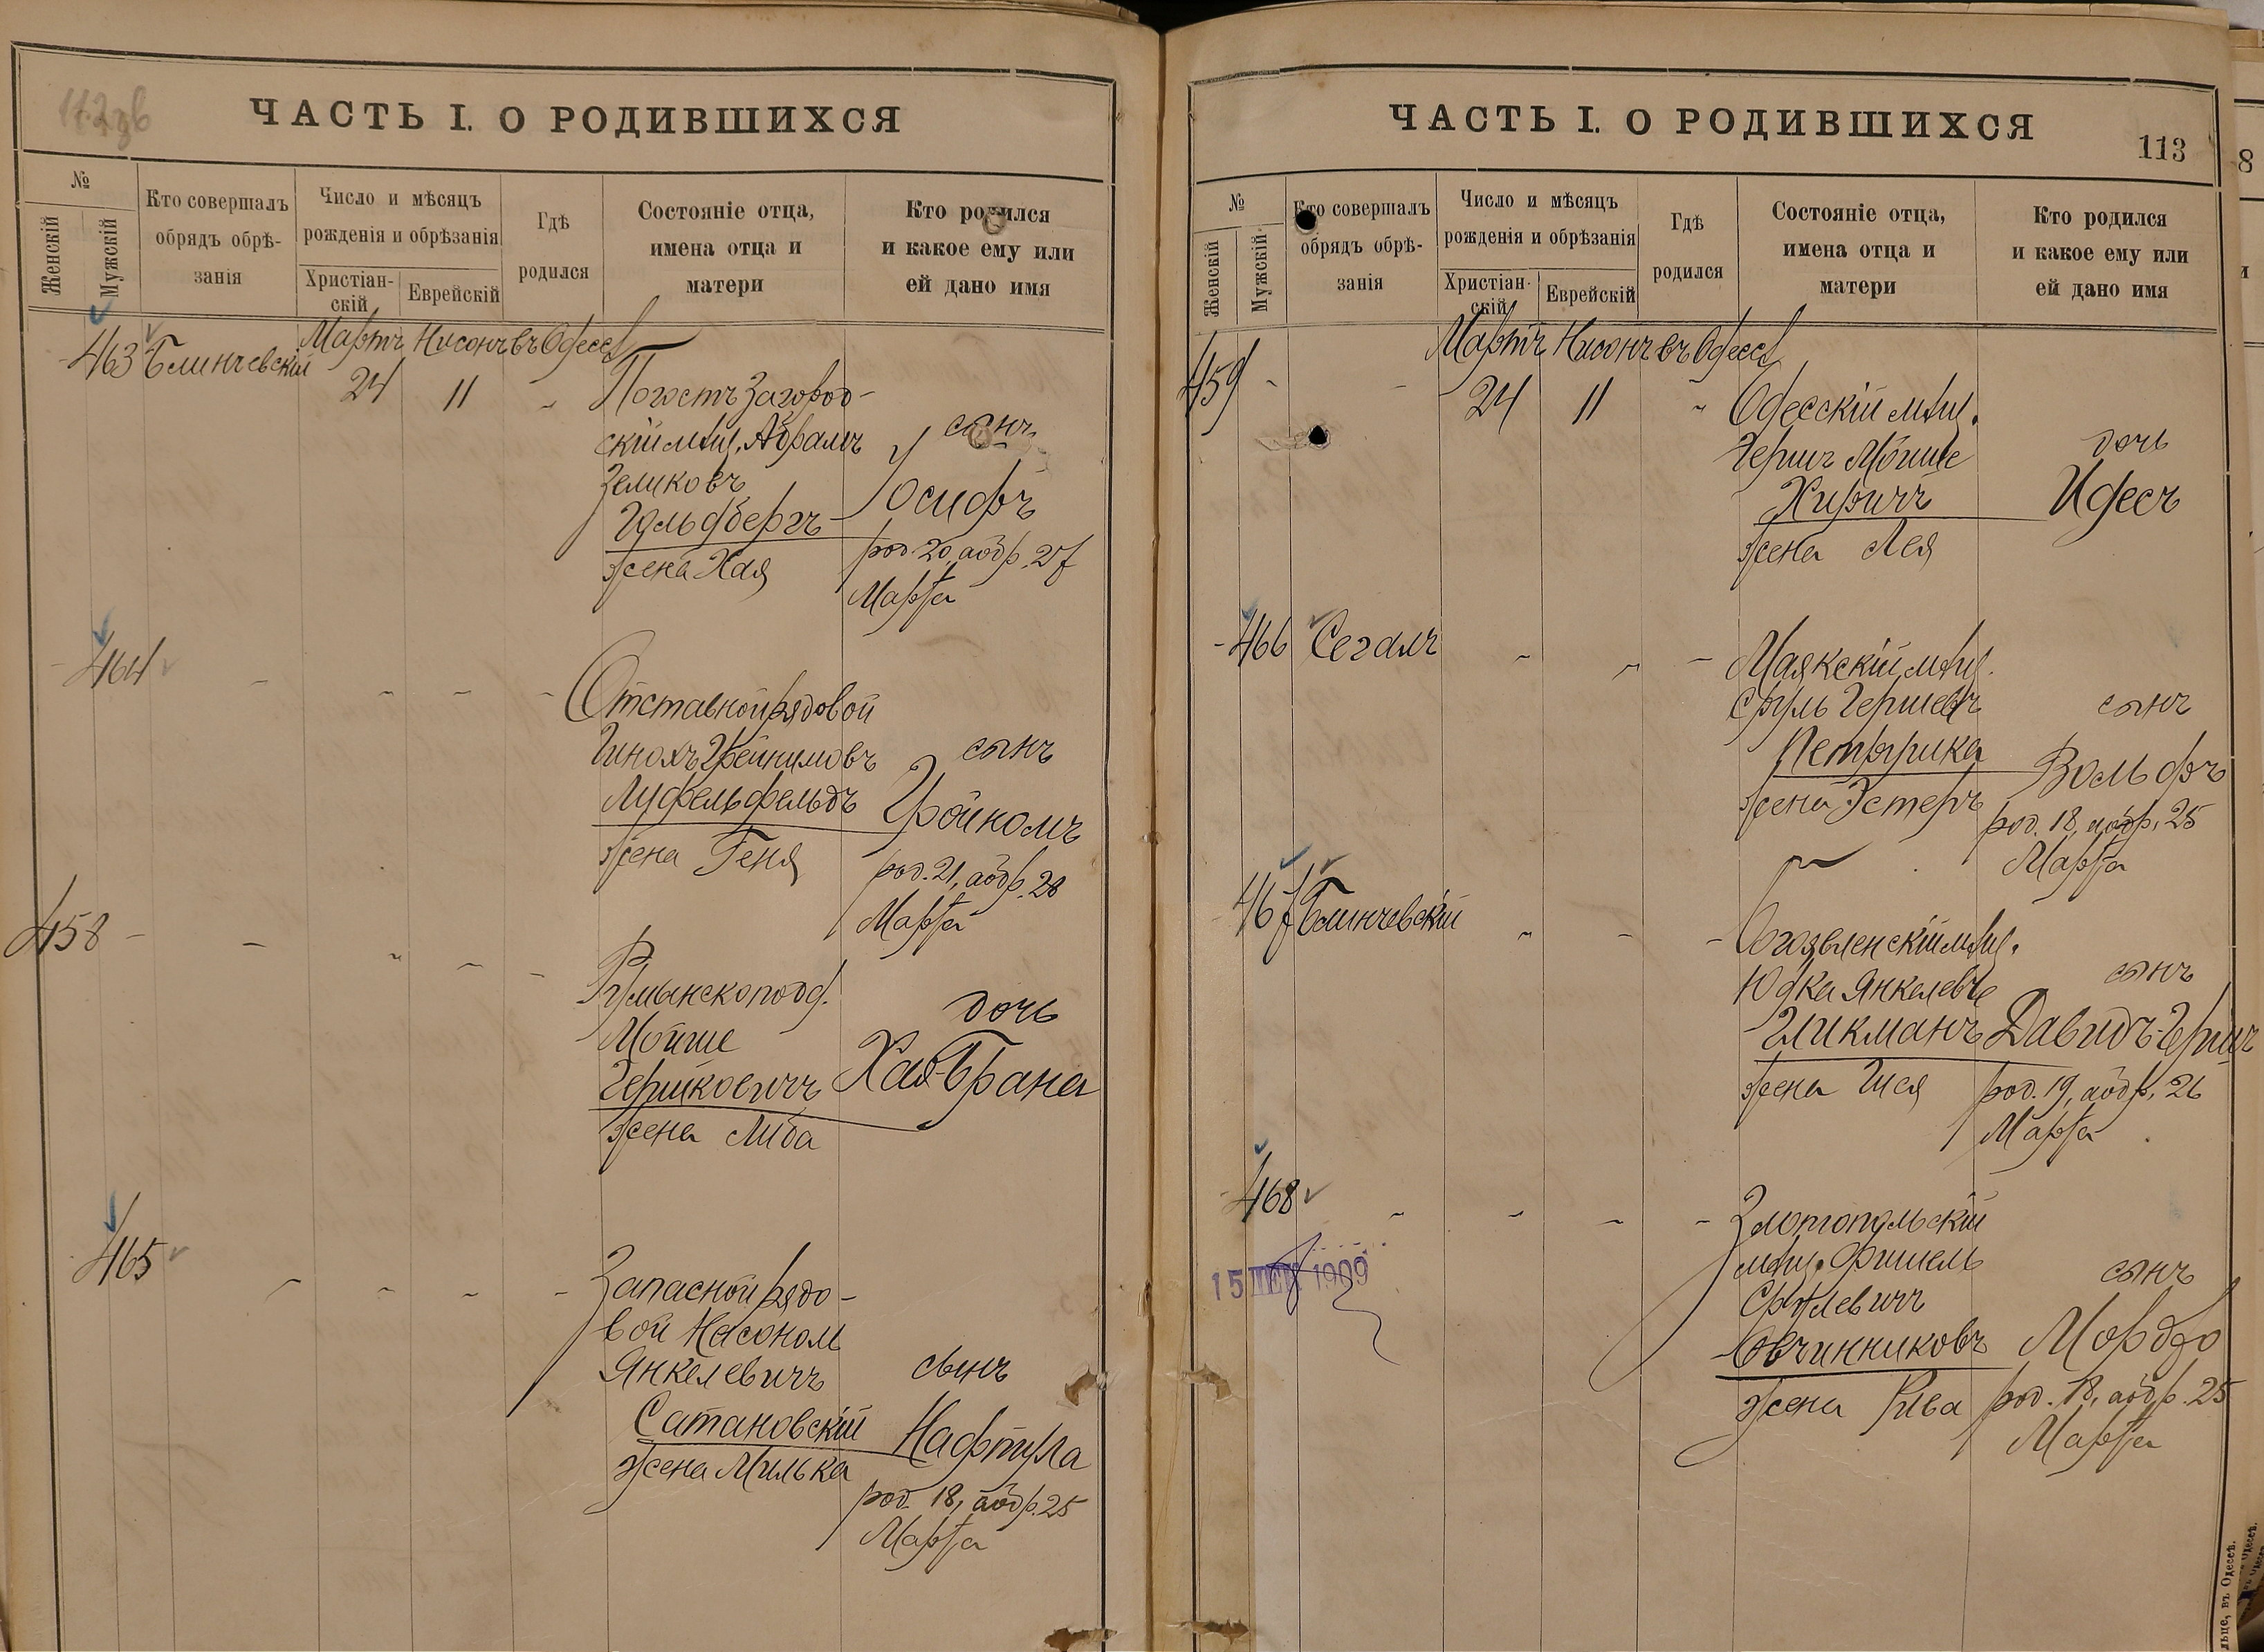 ЧАСТЬ I. О РОДИВШИХСЯ
№
Женскій
Мужскій
Кто совершалъ
обрядъ обрѣ-
занія
Число и мѣсяцъ
рожденія и обрѣзанія
Христіан-
скій
Еврейскій
Гдѣ
родился
Состояніе отца,
имена отца и
матери
Кто родился
и какое ему или
ей дано имя
463 Блинчевскій
Мартъ Нисонъ въ Одессѣ
24 11 -
Погостъ Загород-
скій мѣщ. Абрамъ
Зеликовъ
Гольдбергъ
жена Хая
сынъ
Іосифъ
род. 20, аобр. 27
Марта
464 - - - -
Отставной рядовой
Гройнимовъ
Луфельфельдъ
жена Геня
сынъ
Гройномъ
род. 21, аобр. 28
Марта
458 - - - - -
Румынскоподд.
Мойше
Гершковичъ
жена Либа
дочь
Хая-Брана
465 - - - -
Запасной рядо-
вой
Янкелевичъ
Сатановскій
жена Милька
сынъ
Нафтула
род. 18, аобр. 25
Марта
ЧАСТЬ I. О РОДИВШИХСЯ
113
№
Женскій
Мужскій
Кто совершалъ
обрядъ обрѣ-
занія
Число и мѣсяцъ
рожденія и обрѣзанія
Христіан-
скій
Еврейскій
Гдѣ
родился
Состояніе отца,
имена отца и
матери
Кто родился
и какое ему или
ей дано имя
Мартъ Нисонъ въ Одессѣ
459 - - 24 11 -
Одесскій мѣщ.
Гершъ Мойше
жена Лея
дочь
Идесъ
466 Сегалъ - - -
Маякскій мѣщ.
Сруль Гершевъ
Петрушка
жена Эстеръ
сынъ
Вольфъ
род. 18, аобр. 25
Марта
467 Блинчевскій - - -
Богоявленскій мѣщ.
Юдка Янкелевъ
Шикманъ
жена Шея
сынъ
Давидъ-Гершъ
род. 19, аобр. 26
Марта
468 - - - -
15 СЕН 1909
Златопольскій
мѣщ. Фишель
Срулевичъ
Овчинниковъ
жена Рива
сынъ
Мордко
род. 18, аобр. 25
Марта